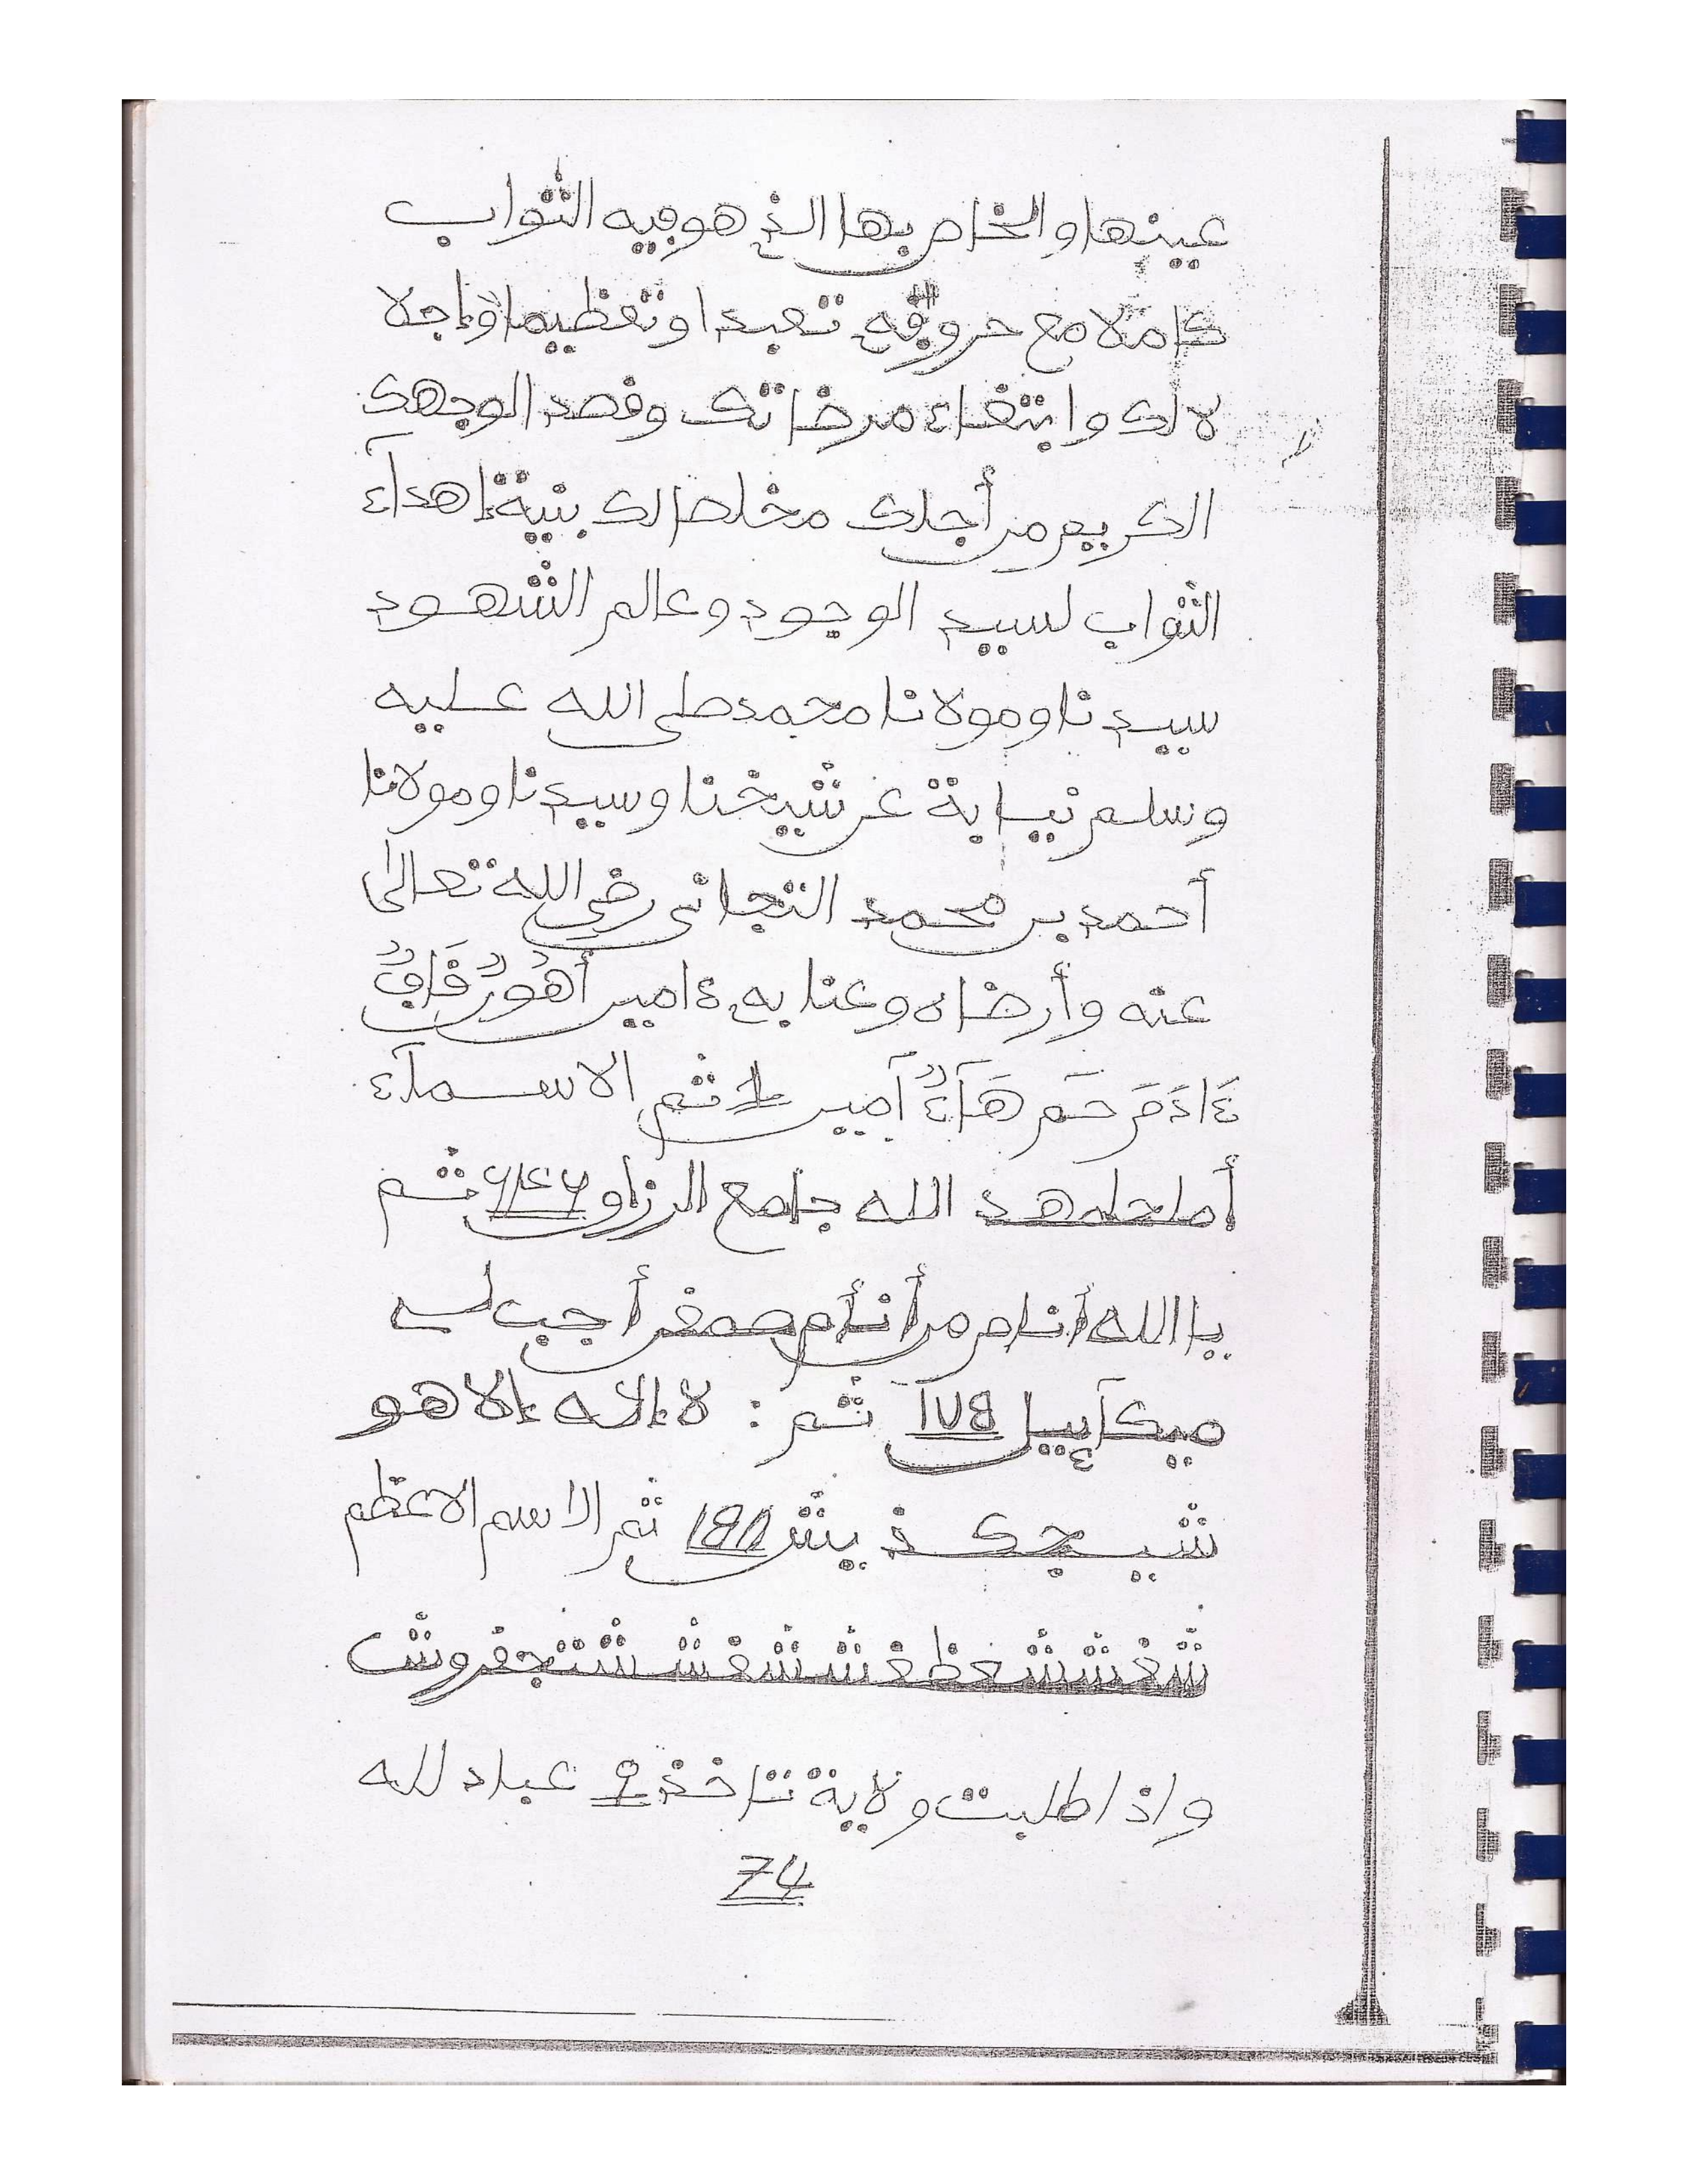 عينها والخاص بها الذ هو فيه الثواب
كاملا مع حروفه تعبدا وتعظيما وإجلا
لا لك وابتغاء مرضاتك وقصد الوجهك
الكريم من أجلك مخلصا لك بنية إهداء
الثواب لسيد الوجود وعالم الشهود
سيدنا ومولانا محمد صلى الله عليه
وسلم نيابة عن شيخنا وسيدنا ومولانا
أحمد بن محمد التجاني رضي الله تعالى
عنه وأرضاه وعنا به ءامين أَهُورٌ قَافٌ
ءَادَمَ حَم هَآءٌ آمين ثم الاسمآء
الله جامع الرزاق ثم
يا الله أجب
ميكآييل ثم : لا إلاه إلا هو
ثم الاسم الاعظم
واذا طلبت ولاية تتاخذ عباد لله
74